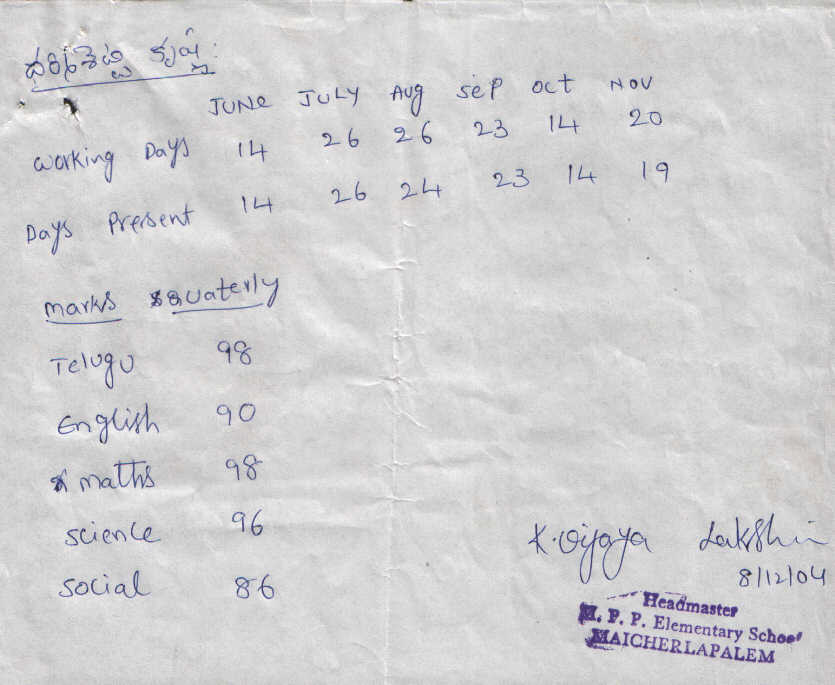 JUNE JULY Aug SEP Oct NOV
Working Days 14 26 26 23 14 20
Days Present 14 26 24 23 14 19
marks Quaterly
Telugu 98
English 90
maths 98
science 96
social 86
K. Vijaya Lakshmi
8/12/04
Headmaster
M. P. P. Elementary School
MAICHERLAPALEM